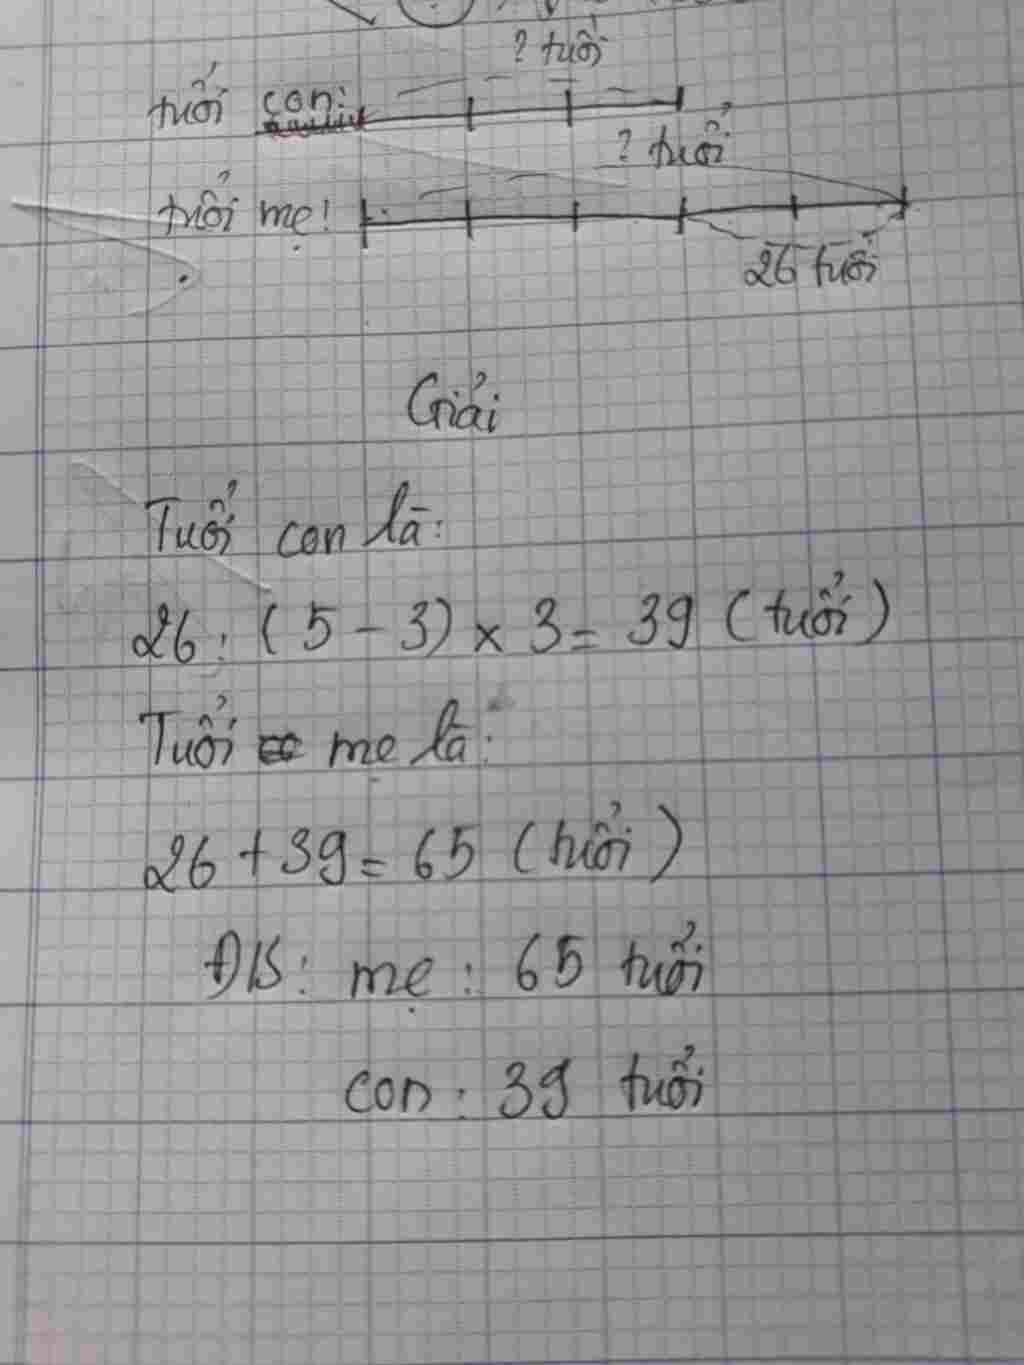 ? tuổi
tuổi con:
? tuổi
tuổi mẹ:
26 tuổi
Giải
Tuổi con là:
26 : ( 5 - 3) x 3 = 39 ( tuổi )
Tuổi mẹ là:
26 + 39 = 65 ( tuổi )
Đ/S: mẹ : 65 tuổi
con : 39 tuổi